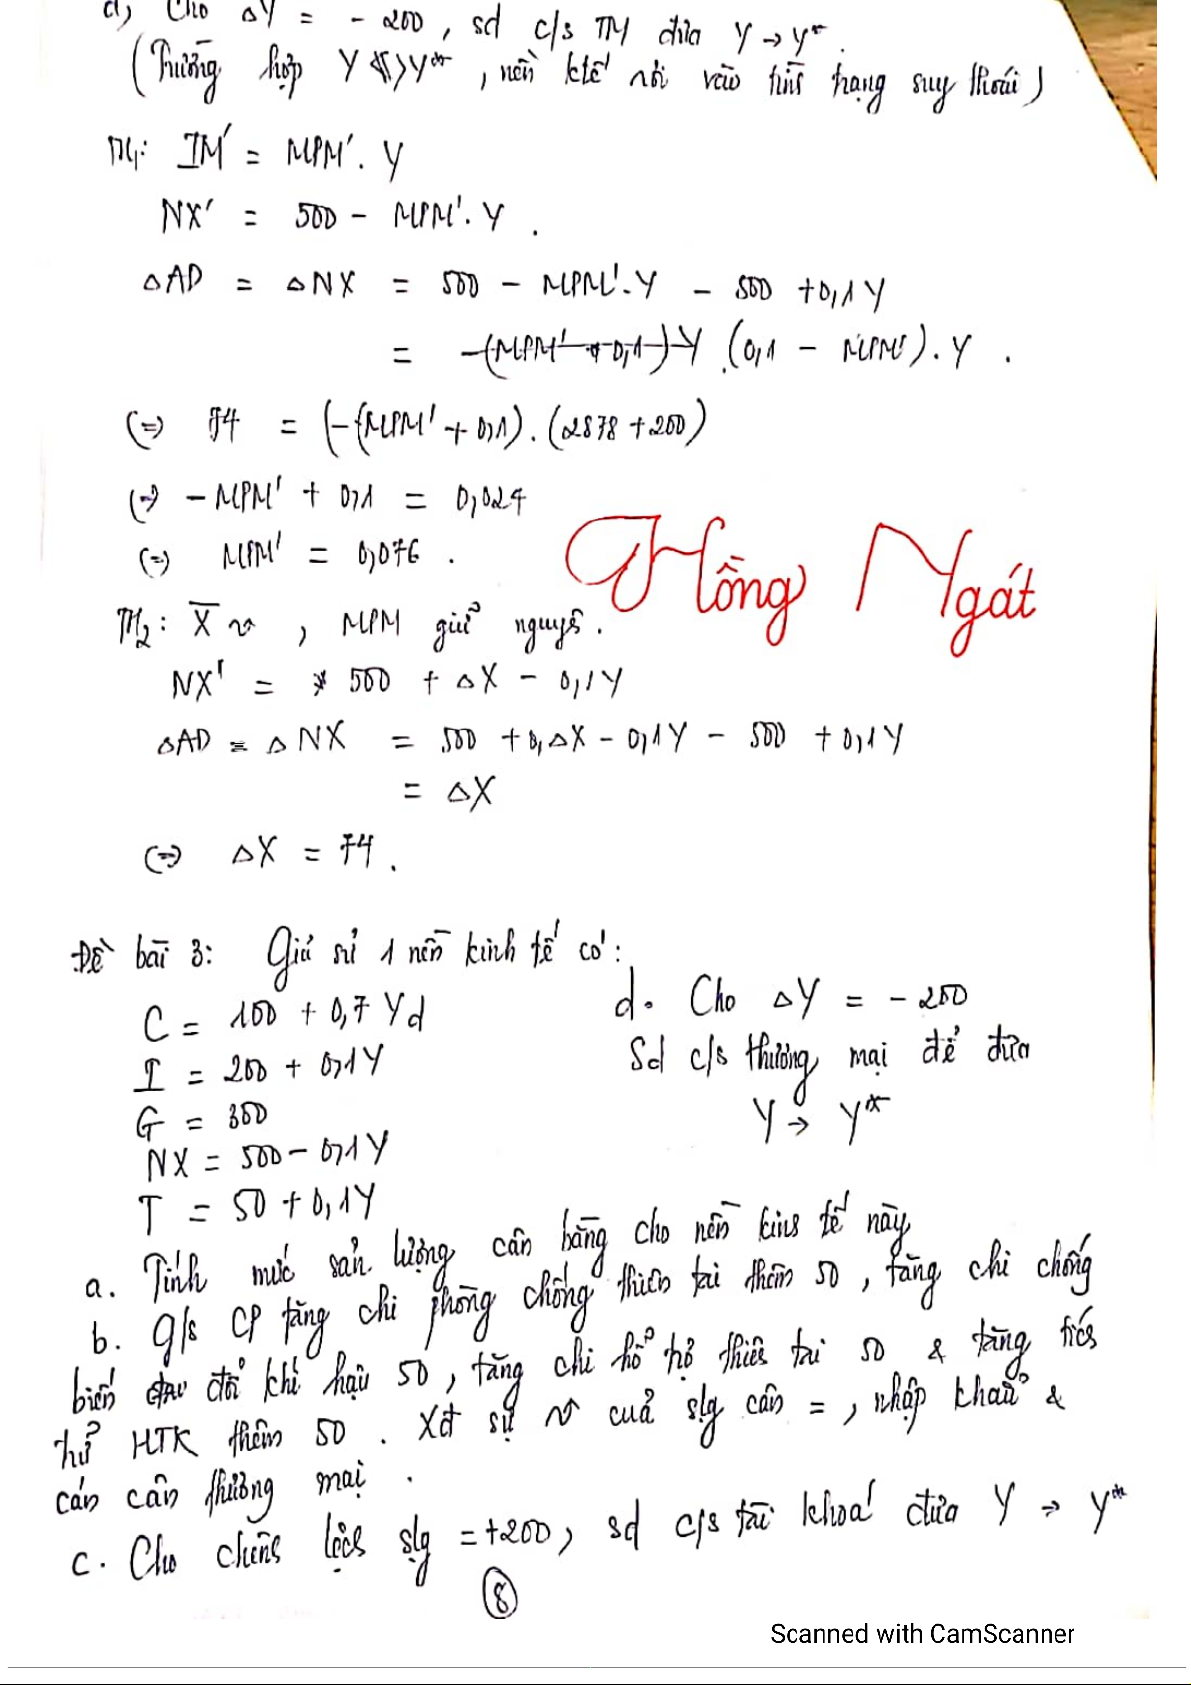 d) Cho ΔY = - 200 , sd c/s TM đưa Y → Y*.
(Trường hợp Y < Y* , nền ktế rơi vào tình trạng suy thoái)
TH1: IM' = MPM' . Y
NX' = 500 - MPM'. Y .
ΔAD = ΔNX = 500 - MPM'.Y - 500 + 0,1Y
= (0,1 - MPM'). Y .
(=) 74 = (-(MPM' + 0,1) . (2878 + 200)
(=) - MPM' + 0,1 = 0,024
(=) MPM' = 0,076 .
Hồng Ngát
TH2: X̄ , MPM giữ nguyên .
NX' = 500 + ΔX - 0,1Y
ΔAD = ΔNX = 500 + ΔX - 0,1Y - 500 + 0,1Y
= ΔX
(=) ΔX = 74 .
Đề bài 3: Giả sử 1 nền kinh tế có :
C = 100 + 0,7 Yd
I = 200 + 0,1Y
G = 300
NX = 500 - 0,1Y
T = 50 + 0,1Y
d. Cho ΔY = - 200
Sd c/s thương mại để đưa
Y → Y*
a. Tính mức sản lượng cân bằng cho nền kinh tế này
b. g/s CP tăng chi phòng chống thiên tai thêm 50 , tăng chi chống
biến đổi khí hậu 50 , tăng chi hỗ trợ thiên tai 50 & tăng
thử HTK thêm 50 . Xđ sự của slg cân = , nhập khẩu &
cán cân thương mại .
c. Cho chênh lệch slg = +200 , sd c/s tài khoá đưa Y → Y*
8
Scanned with CamScanner